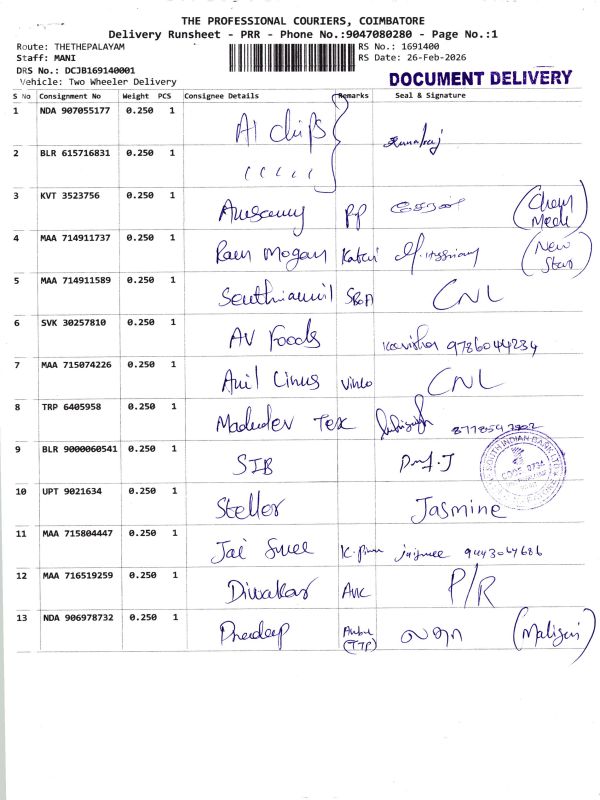 THE PROFESSIONAL COURIERS, COIMBATORE
Delivery Runsheet - PRR - Phone No.:9047080280 - Page No.:1
Route: THETHEPALAYAM
Staff: MANI
DRS No.: DCJB169140001
Vehicle: Two Wheeler Delivery
RS No.: 1691400
RS Date: 26-Feb-2026
DOCUMENT DELIVERY
S No Consignment No Weight PCS Consignee Details Remarks Seal & Signature
1 NDA 907055177 0.250 1 A1 chips
2 BLR 615716831 0.250 1
3 KVT 3523756 0.250 1 PP
4 MAA 714911737 0.250 1 Ram Mogan (New Star)
5 MAA 714911589 0.250 1 CNL
6 SVK 30257810 0.250 1 AV Foods 9786044234
7 MAA 715074226 0.250 1 CNL
8 TRP 6405958 0.250 1 Madudev Tex
9 BLR 9000060541 0.250 1 SIB
SOUTH INDIAN BANK LTD
10 UPT 9021634 0.250 1 Steller Jasmine
11 MAA 715804447 0.250 1 Jai Shree 9443067686
12 MAA 716519259 0.250 1 Diwakar P/R
13 NDA 906978732 0.250 1 Predeep (TTP)